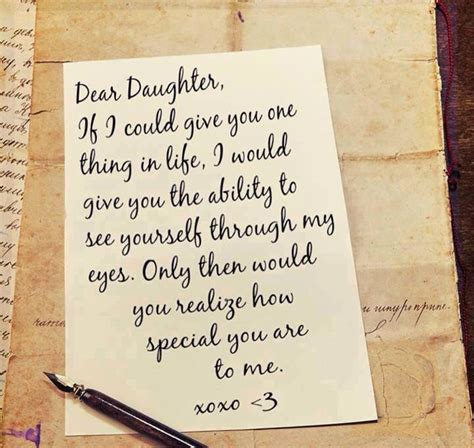 Dear Daughter,
If I could give you one
thing in life, I would
give you the ability to
see yourself through my
eyes. Only then would
you realize how
special you are
to me.
xoxo <3